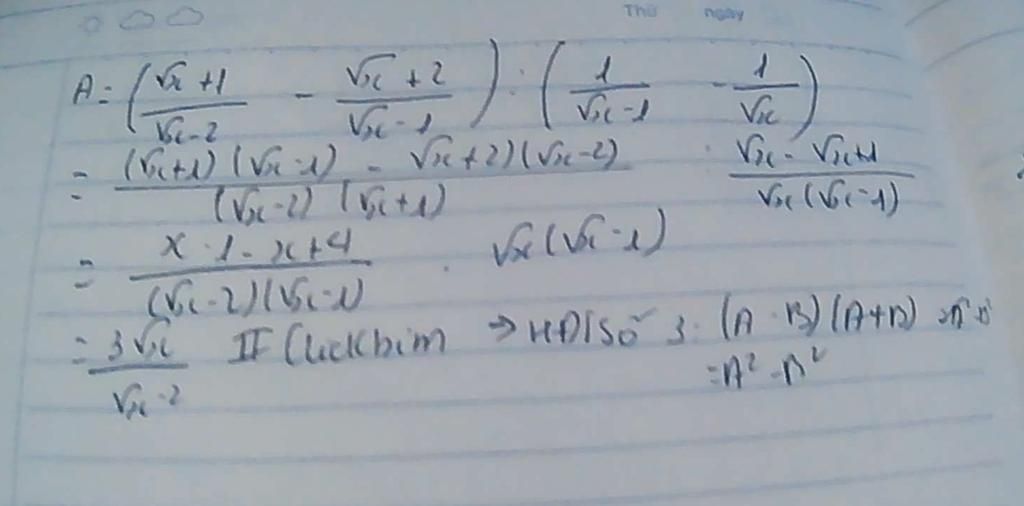 Thứ ngày
A = (√x + 1 / √x - 2 - √x + 2 / √x - 1) : (1 / √x - 1 - 1 / √x)
= (√x + 1)(√x - 1) - √x + 2)(√x - 2) / (√x - 2)(√x + 1) : √x - √x + 1 / √x(√x - 1)
= x - 1 - x + 4 / (√x - 2)(√x - 1) . √x(√x - 1)
= 3√x / √x - 2 ⇒ HĐT số 3: (A - B)(A + B)
= A² - B²